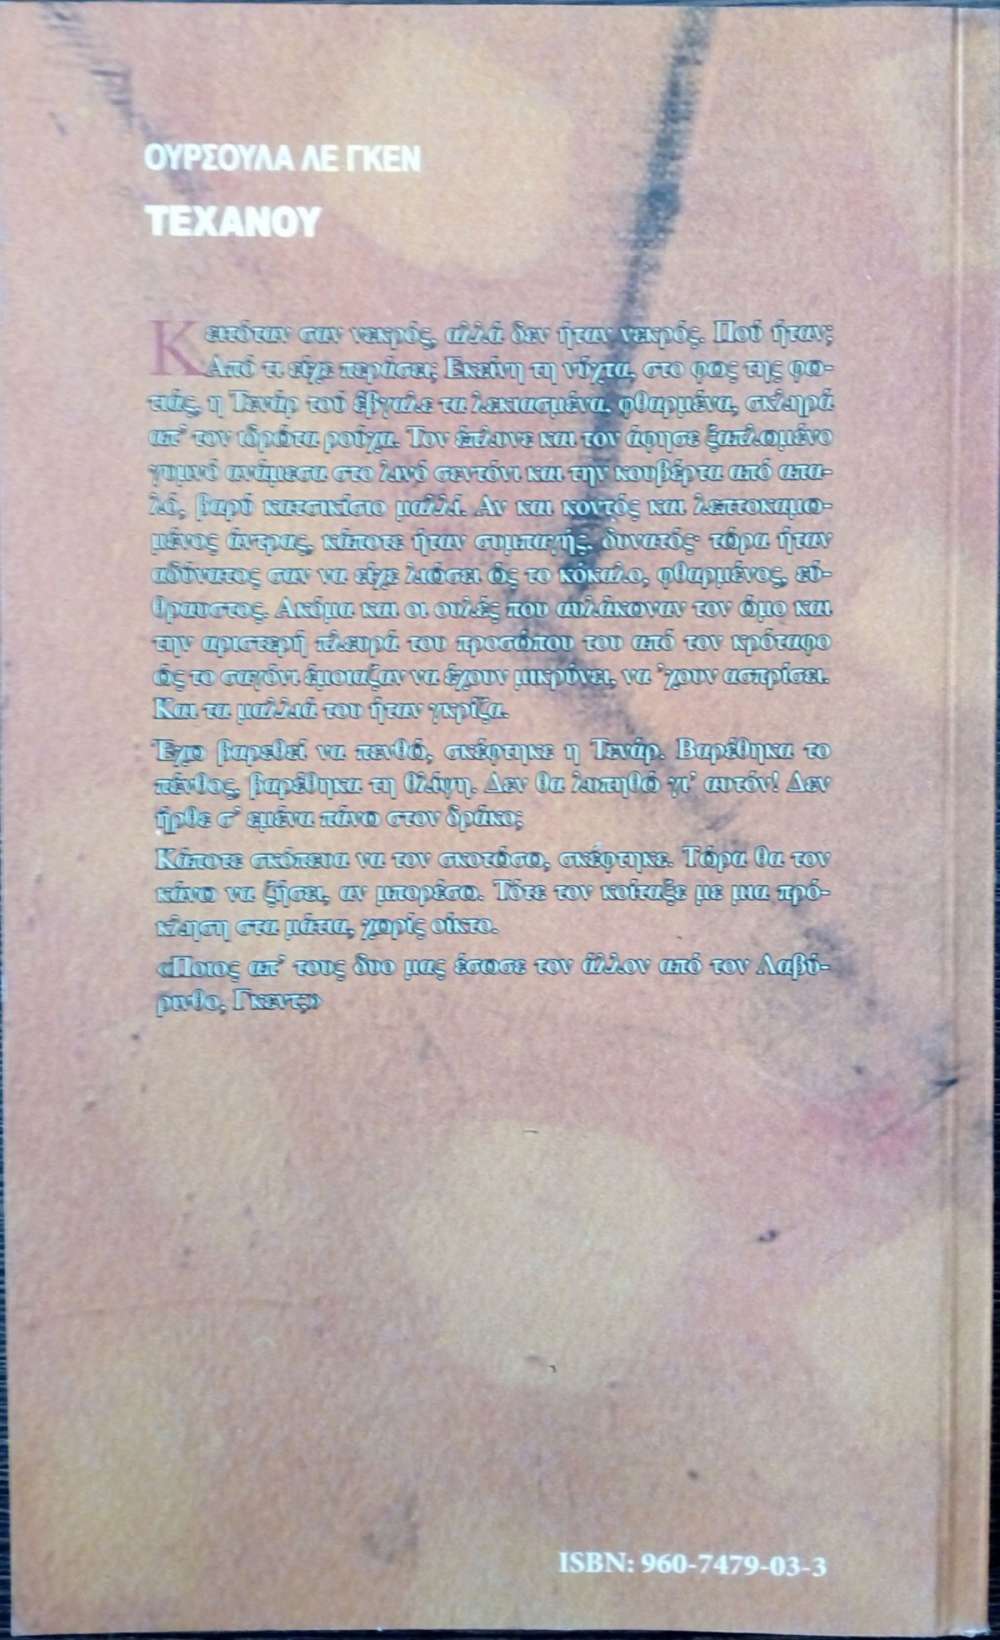 ΟΥΡΣΟΥΛΑ ΛΕ ΓΚΕΝ
ΤΕΧΑΝΟΥ
Κειτόταν σαν νεκρός, αλλά δεν ήταν νεκρός. Πού ήταν;
Από τι είχε περάσει; Εκείνη τη νύχτα, στο φως της φω-
τιάς, η Τενάρ τού έβγαλε τα λεκιασμένα, φθαρμένα, σκληρά
απ' τον ιδρώτα ρούχα. Τον έπλυνε και τον άφησε ξαπλωμένο
γυμνό ανάμεσα στο λινό σεντόνι και την κουβέρτα από απα-
λό, βαρύ κατσικίσιο μαλλί. Αν και κοντός και λεπτοκαμω-
μένος άντρας, κάποτε ήταν συμπαγής, δυνατός· τώρα ήταν
αδύνατος σαν να είχε λιώσει ώς το κόκαλο, φθαρμένος, εύ-
θραυστος. Ακόμα και οι ουλές που αυλάκωναν τον ώμο και
την αριστερή πλευρά του προσώπου του από τον κρόταφο
ώς το σαγόνι έμοιαζαν να έχουν μικρύνει, να 'χουν ασπρίσει.
Και τα μαλλιά του ήταν γκρίζα.
Έχω βαρεθεί να πενθώ, σκέφτηκε η Τενάρ. Βαρέθηκα το
πένθος, βαρέθηκα τη θλίψη. Δεν θα λυπηθώ γι' αυτόν! Δεν
ήρθε σ' εμένα πάνω στον δράκο;
Κάποτε σκόπευα να τον σκοτώσω, σκέφτηκε. Τώρα θα τον
κάνω να ζήσει, αν μπορέσω. Τότε τον κοίταξε με μια πρό-
κληση στα μάτια, χωρίς οίκτο.
«Ποιος απ' τους δυο μας έσωσε τον άλλον από τον Λαβύ-
ρινθο, Γκεντ;»
ISBN: 960-7479-03-3